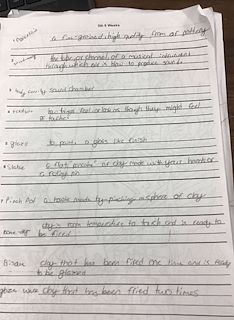 6th 6 Weeks
a fine-grained, high quality form of pottery
the tube or channel of a musical instrument
through which air is blown to produce sound
body cavity sound chamber
texture how things feel or look as though they might feel
or touched
glaze to paints a glass like finish
Slabs a flat "pancake" of clay made with your hands or
a rolling pin
Pinch Pot a made by pinching a sphere of clay
bone-dry clay is room temperature to touch and is ready to
be fired
Bisque clay that has been fired one time and is ready
to be glazed
glaze ware clay that has been fired two times